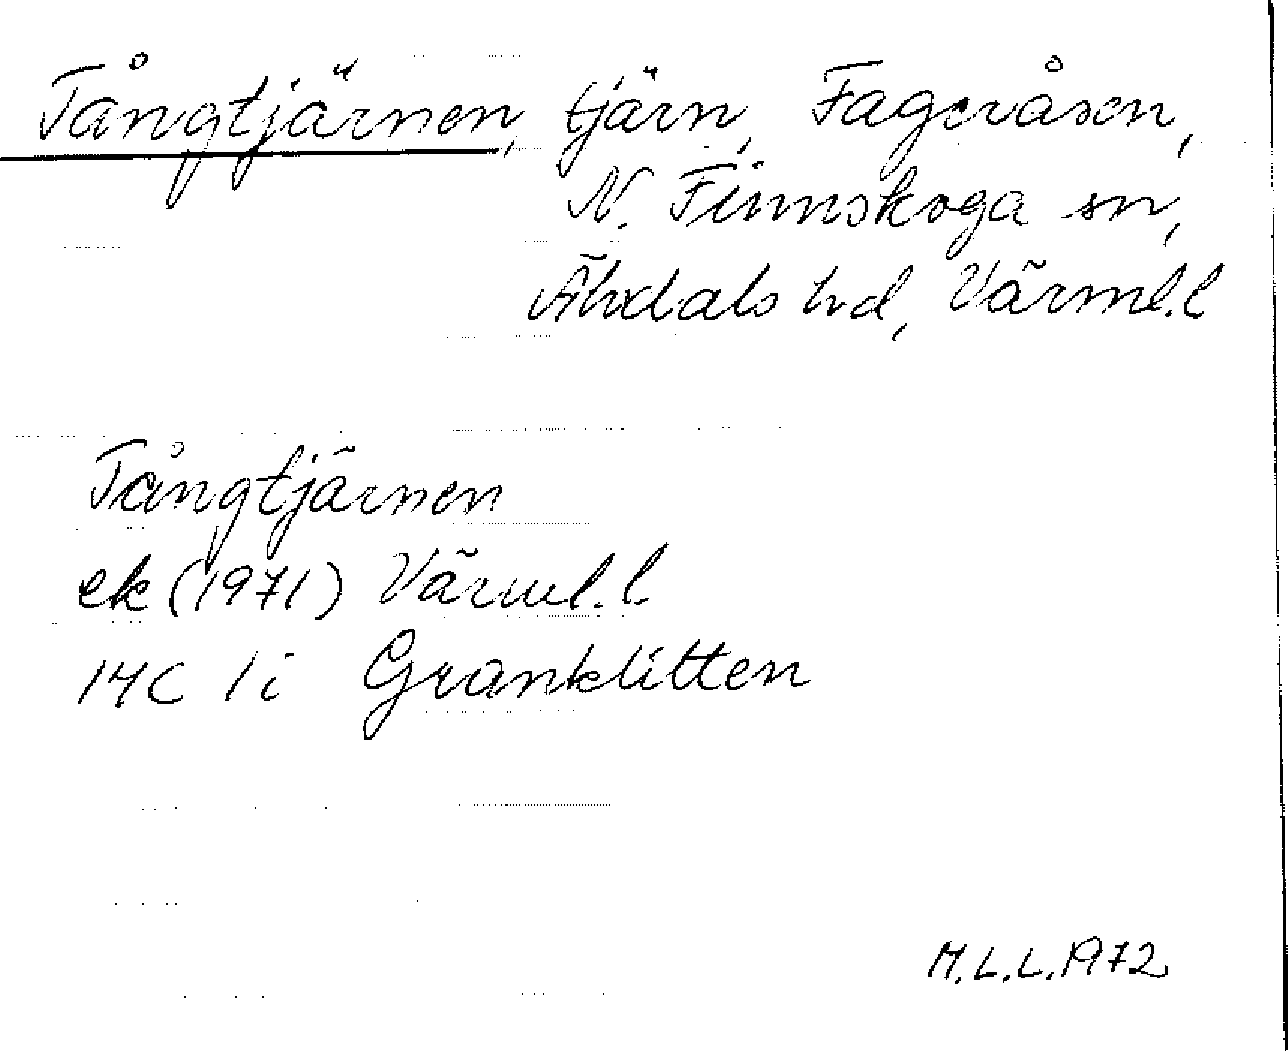 Tångtjärnen, tjärn, Fageråsen,
N. Finnskoga sn,
Älvdals hd, Värml. l
Tångtjärnen
ek (1971) Värml. l
14C 1i Granklitten
M.L.L. 1972